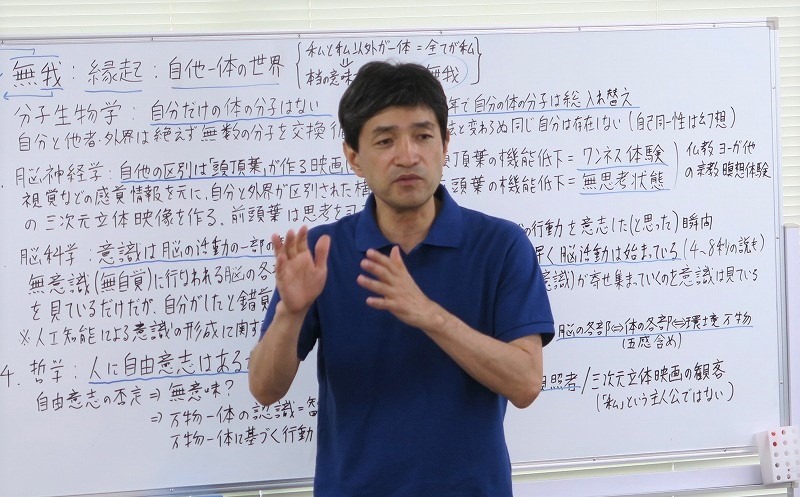 無我：縁起：自他一体の世界 {私と私以外が一体＝全てが私
本当の意味 無我)}
分子生物学：自分だけの体の分子はない 年で自分の体の分子は総入れ替え
自分と他者・外界は絶えず無数の分子を交換循 と変わらぬ同じ自分は存在しない（自己同一性は幻想）
脳神経学：自他の区別は「頭頂葉」が作る映画 頂葉の機能低下＝ワンネス体験 仏教 ヨーガ他
視覚などの感覚情報を元に、自分と外界が区別された 頭葉の機能低下＝無思考状態 の宗教 瞑想体験
の三次元立体映像を作る。前頭葉は思考を司 の行動を意志した（と思った）瞬間
脳科学：意識は脳の活動の一部の 早く脳活動は始まっている（4〜8秒の説も）
無意識（無自覚）に行なわれる脳の各 意識）が寄せ集まっていくのを意識は見ている
を見ているだけだが、自分がしたと錯覚
※人工知能による意識の形成に関す 脳の各部⇔体の各部⇔環境万物
（五感含め）
4. 哲学：人に自由意志はあるか 照者／三次元立体映画の観客
自由意志の否定⇒無意味？ （「私」という主人公ではない）
⇒万物一体の認識＝智
万物一体に基づく行動